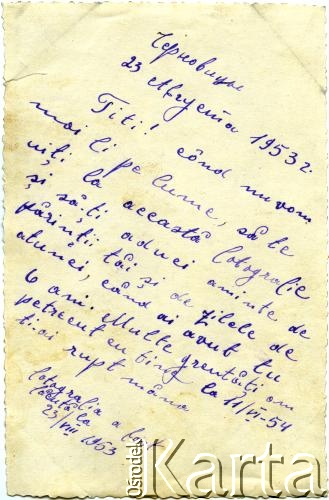 Черновицы
23 Августа 1953 г.
Titi! când nu vom
mai fi pe lume, să te
uiți la această fotografie
și să-ți aduci aminte de
părinții tăi și de zilele de
atunci, când ai avut tu
6 ani. Multe greutăți am
petrecut cu tine, la 11/VI-54
ți-ai rupt mâna
fotografia a fost
făcută la
23/VIII 1953
Ośrodek
Karta